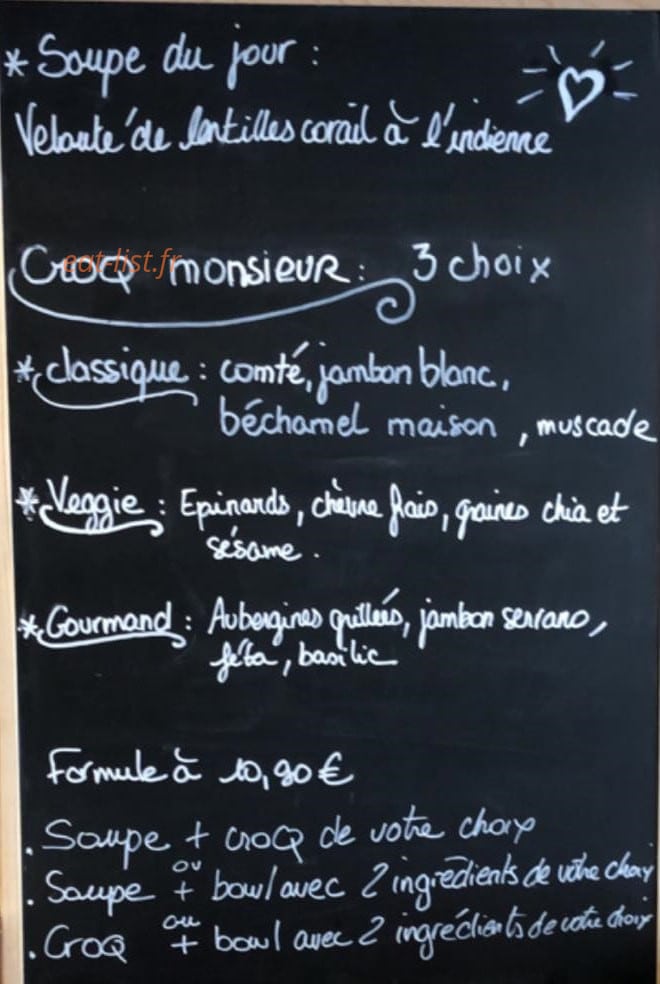 * Soupe du jour :
Velouté de lentilles corail à l'indienne
Croq monsieur : 3 choix
eat-list.fr
* classique : comté, jambon blanc,
béchamel maison , muscade
* Veggie : Epinards, chèvre frais, graines chia et
sésame .
* Gourmand : Aubergines grillées, jambon serrano,
féta, basilic
Formule à 10,90 €
. Soupe + croq de votre choix
ou
. Soupe + bowl avec 2 ingrédients de votre choix
ou
. Croq + bowl avec 2 ingrédients de votre choix